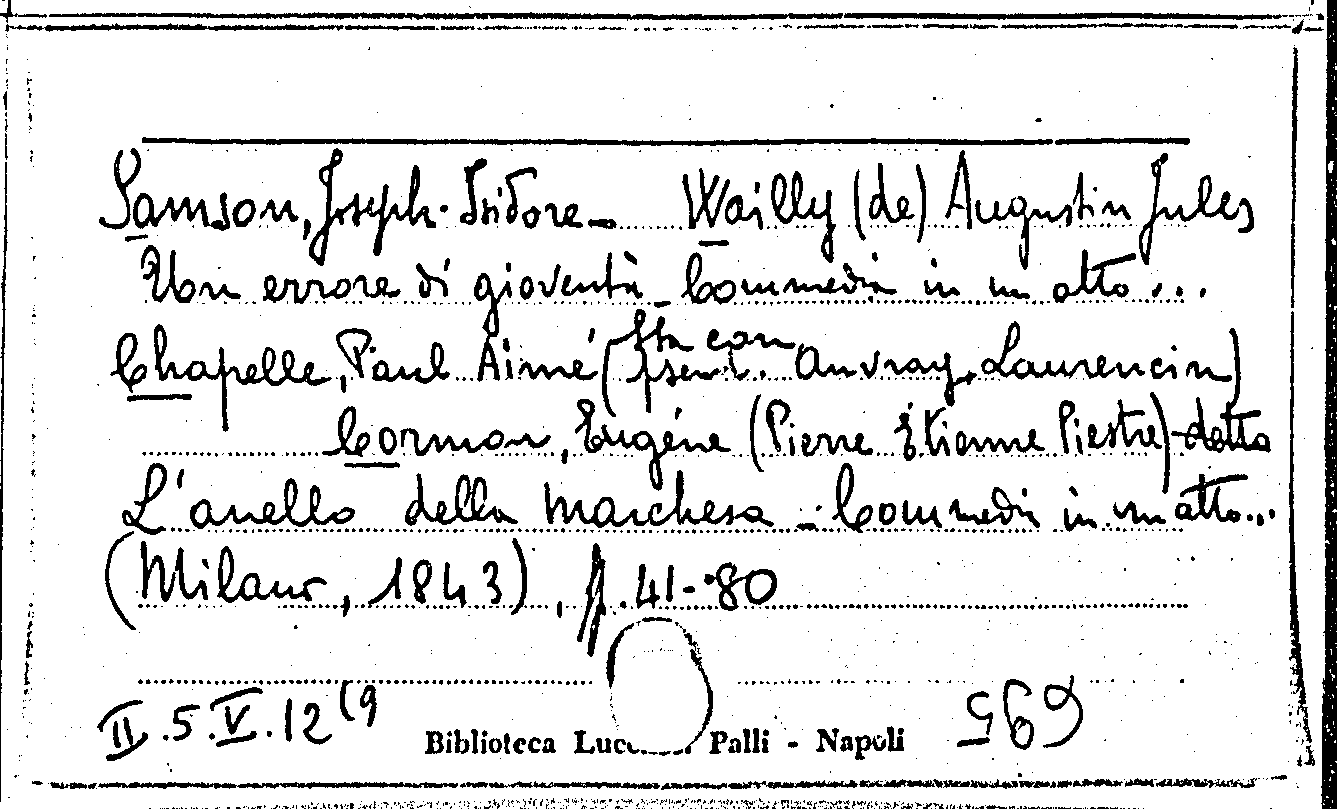 Samson, Joseph-Isidore - Wailly (de) Augustin Jules
Un errore di gioventù - Commedia in un atto...
Chapelle, Paul Aimé (pseud. Auvray, Laurencin)
Cormon, Eugéne (Pierre Étienne Piestre) detto
L'anello della marchesa - Commedia in un atto...
(Milano, 1843), p. 41-80
II.5.V.12(9
Biblioteca Palli - Napoli
695